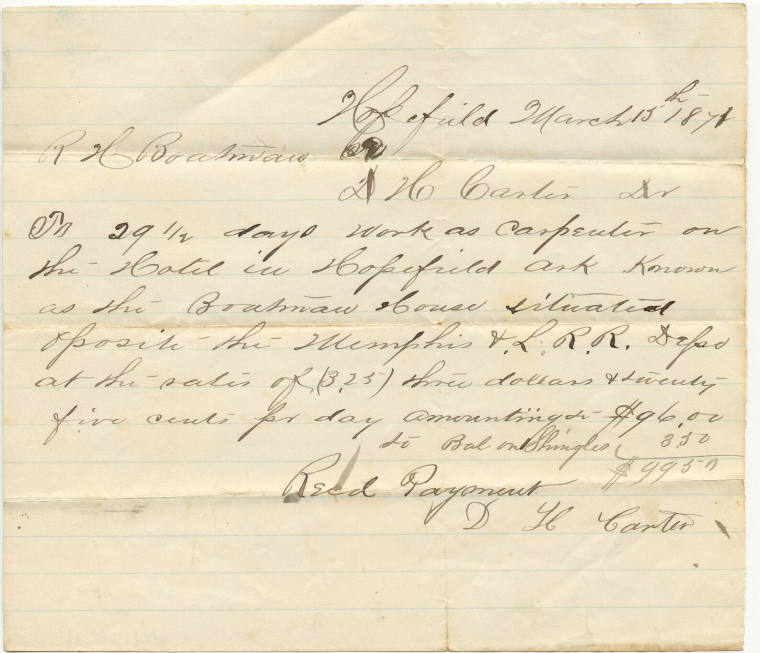 Hopefield March 15th 1871
R H Boatman
D H Carter Dr
To 29 1/2 days work as Carpenter on
the Hotel in Hopefield Ark Known
as the Boatman House situated
oposite the Memphis & L. R. R. R. Depo
at the rates of (3,25) three dollars & twenty
five cents pr day amounting to $96,00
to Bal on Shingles 3 50
$99 50
Recd Payment
D H Carter